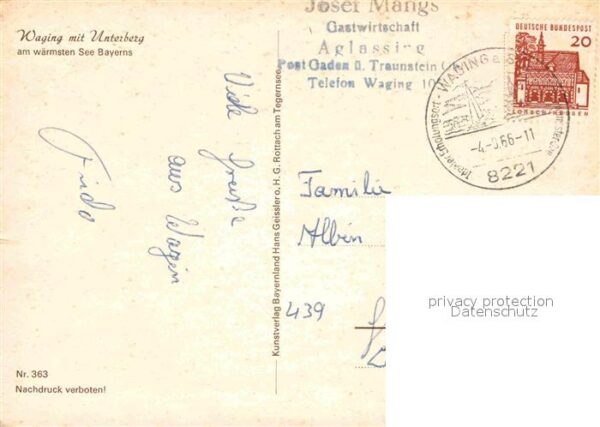 Waging mit Unterberg
am wärmsten See Bayerns
Josef Mangs
Gastwirtschaft
Aglassing
Post Gaden ü. Traunstein
Telefon Waging 10
DEUTSCHE BUNDESPOST
20
LORSCH/HESSEN
WAGING a.
-4.-9.66-11
8221
Viele Grüße
aus Wagin
Frido
Kunstverlag Bayernland Hans Geissler o. H. G. Rottach am Tegernsee
Familie
Albin
439
Nr. 363
Nachdruck verboten!
privacy protection
Datenschutz